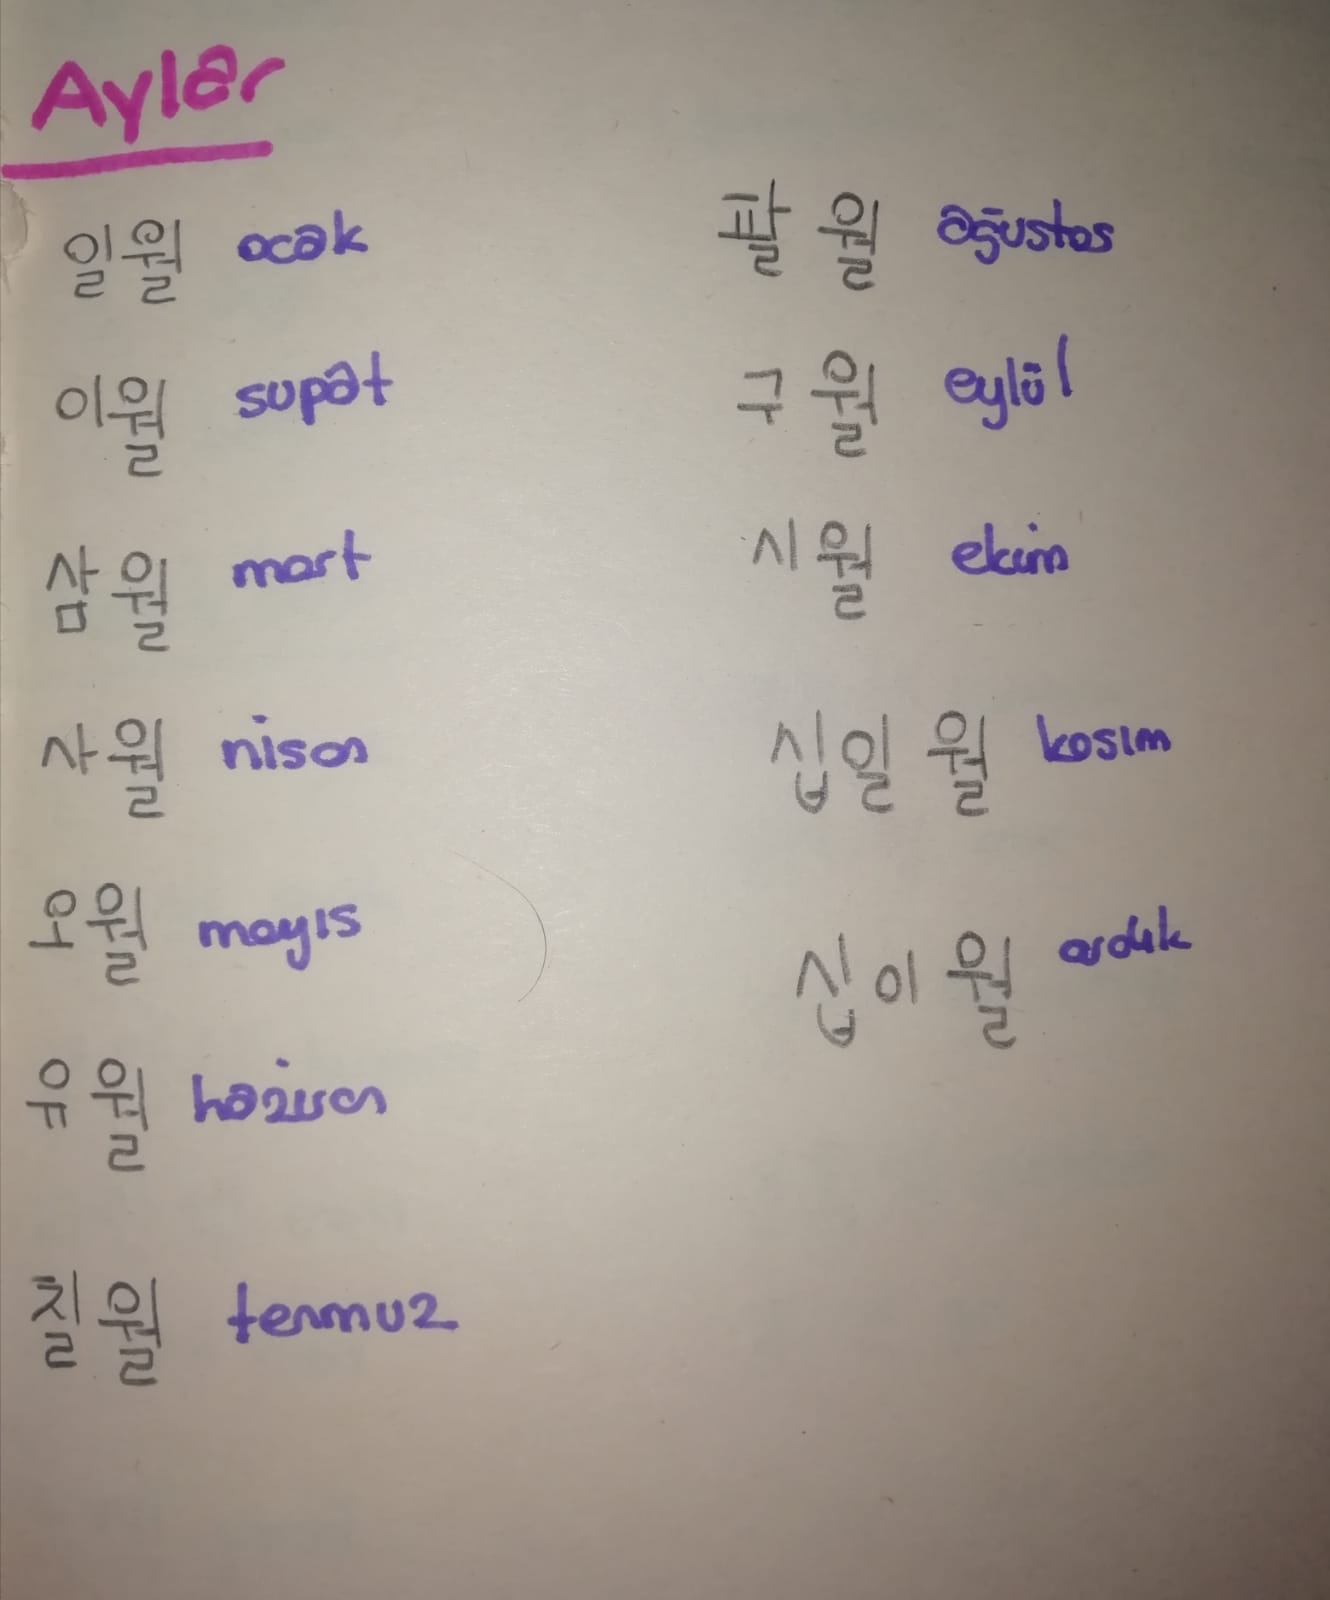 Aylar
일월 ocak
이월 şupat
삼월 mart
사월 nisan
오월 mayıs
유월 haziran
칠월 temmuz
팔월 ağustos
구월 eylül
시월 ekim
십일월 kasım
십이월 aralık